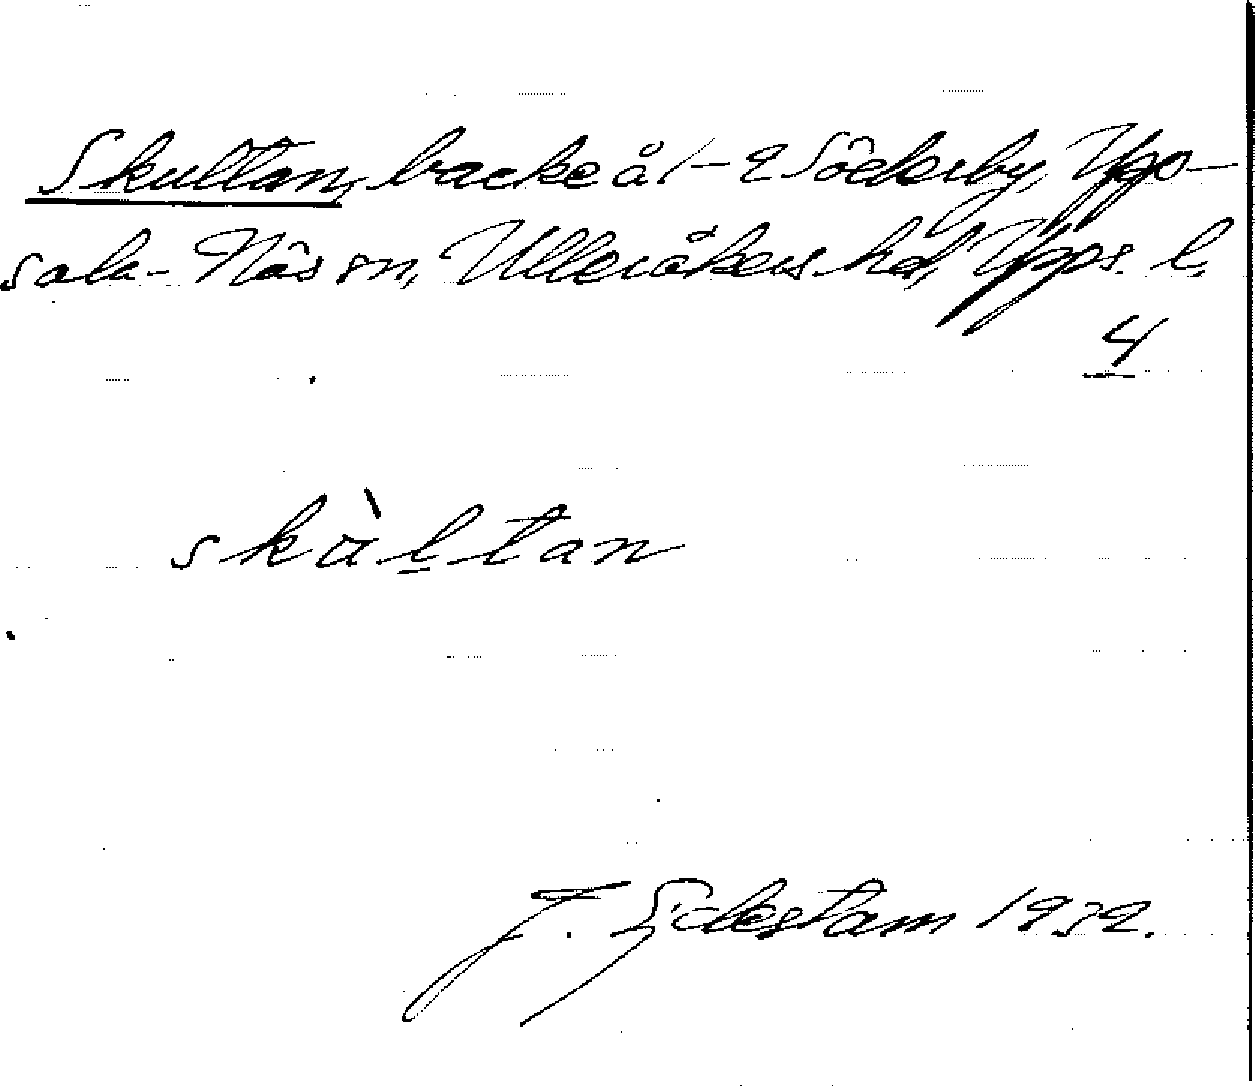 Skultan, backe å 1–2 Söderby, Upp-
sala-Näs sn, Ulleråkers hd, Upps. l.
4
skàl̠tan
F. Hjelmstam 1932.